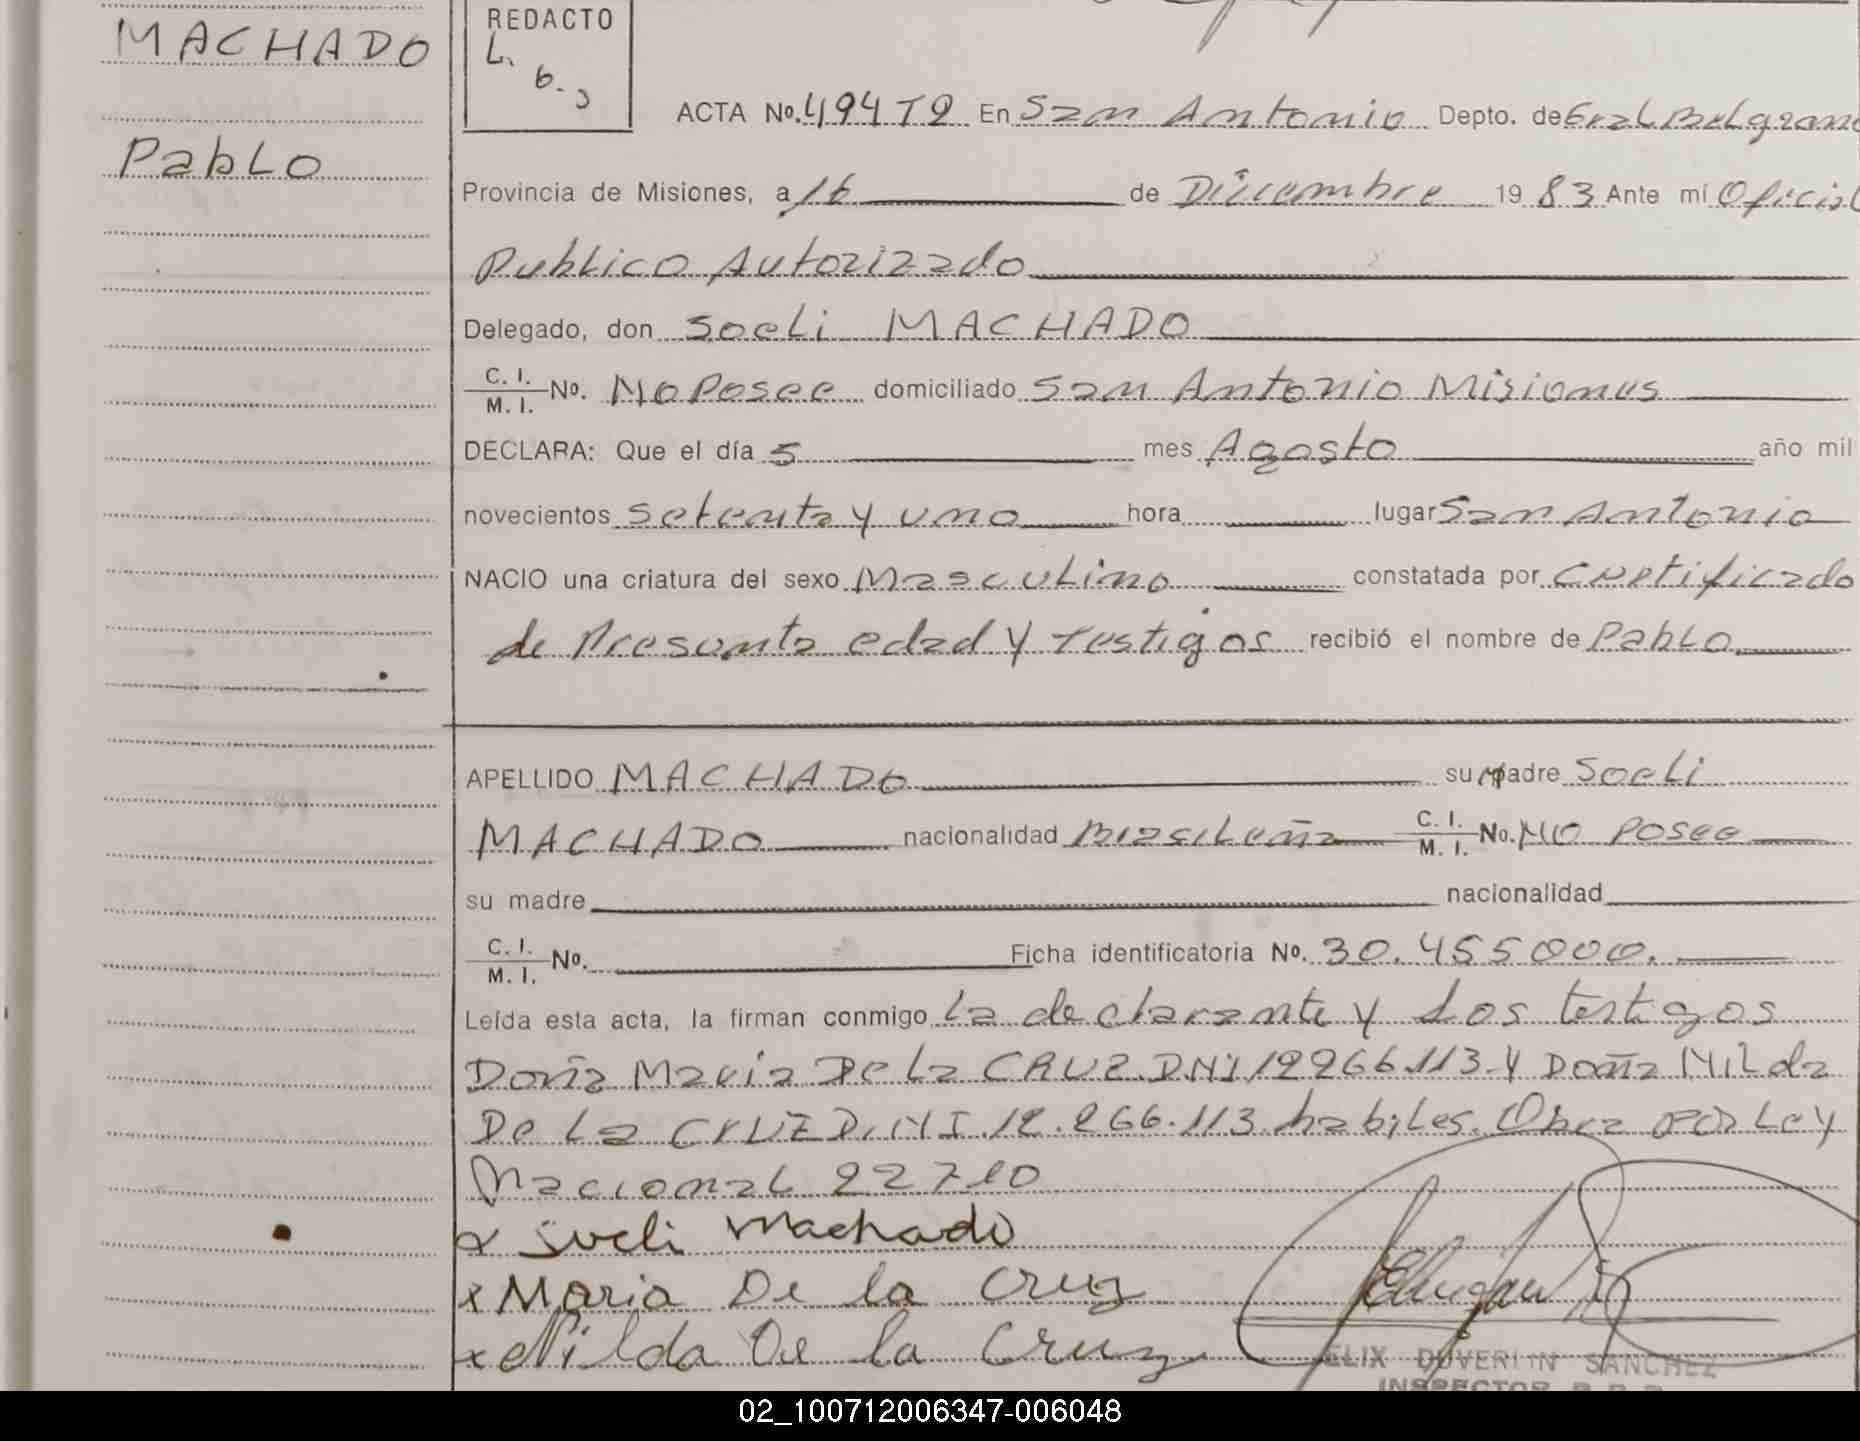 MACHADO
Pablo
REDACTO
L.
6.
ACTA No. 494 T2 En San Antonio Depto. de Gral Belgrano
Provincia de Misiones, a 16 de Diciembre 1983 Ante mí Oficial
Publico Autorizado
Delegado, don Soeli MACHADO
C. I. / M. I. No. No Posee domiciliado San Antonio Misiones
DECLARA: Que el día 5 mes Agosto año mil
novecientos setenta y uno hora lugar San Antonio
NACIO una criatura del sexo Masculino constatada por Certificado
de Presunta edad y Testigos recibió el nombre de Pablo.
APELLIDO MACHADO su madre Soeli
MACHADO nacionalidad Brasileña C. I. / M. I. No. NO Posee
su madre nacionalidad
C. I. / M. I. No. Ficha identificatoria No. 30.455000.
Leída esta acta, la firman conmigo La declarante y Los testigos
Doña Maria De La CRUZ D.N.I 12266.113 Y Doña Nilda
De La CRUZ D.N.I. 12.266.113 habiles. Obra por Ley
Nacional 22710
x Sueli Machado
x Maria De la Cruz
x Nilda De la Cruz
SANCHEZ
INSPECTOR
02_100712006347-006048